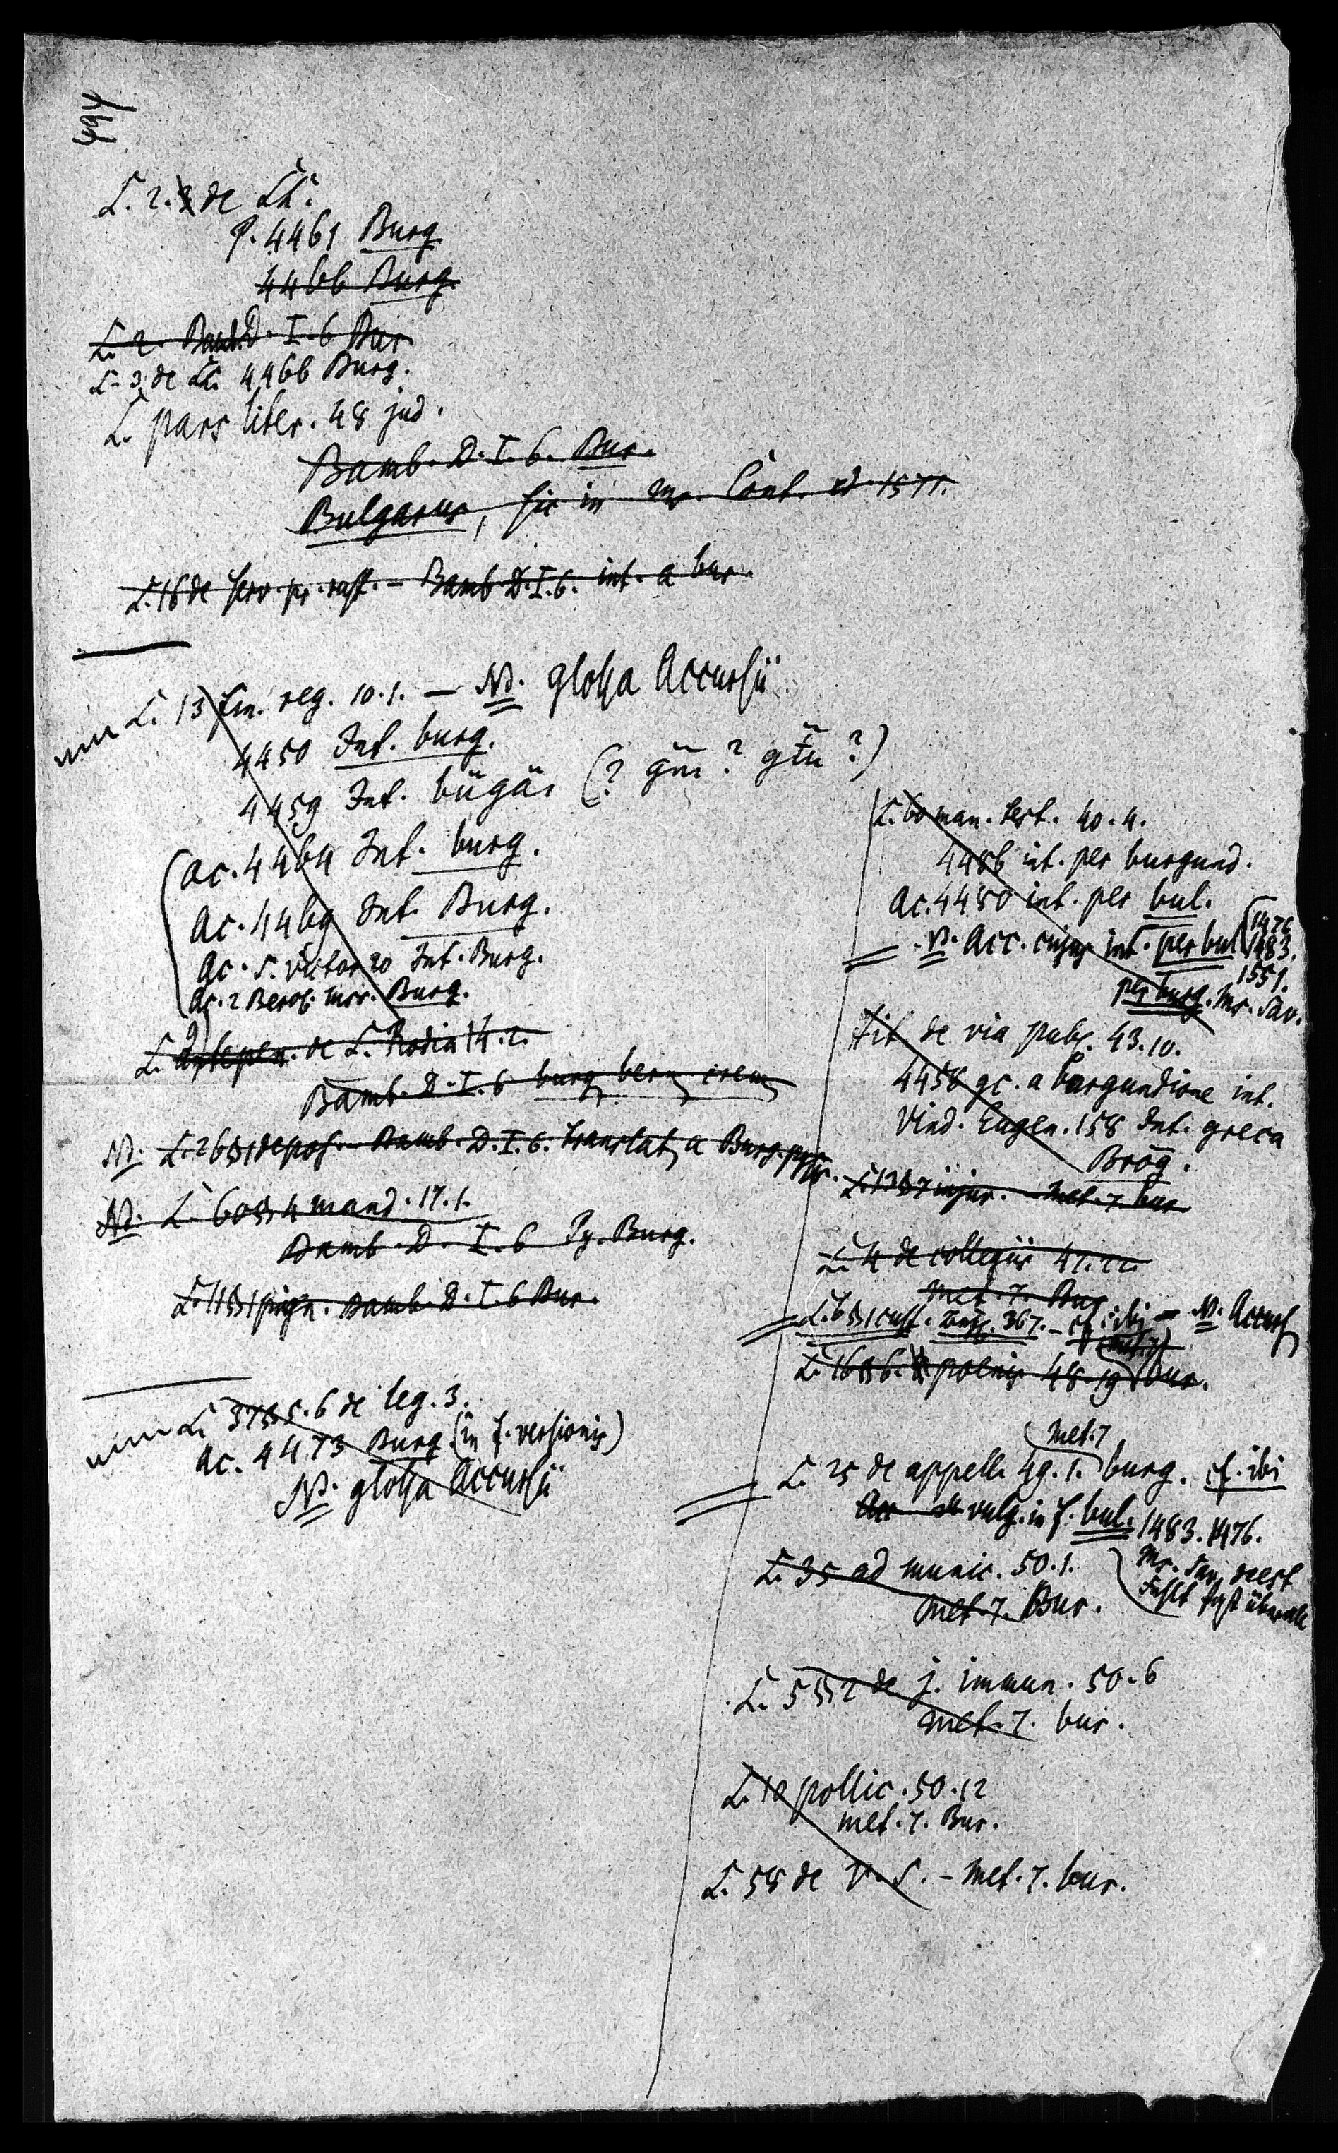 444
L. 2. de LL.
P. 4461 Burg
4466 Burg.
L. 2. Bamb. D. I. 6 Bur
L. 2 de LL. 4466 Burg.
L. pars liter. 48 jud.
Bamb. D. I. 6. Bur.
Bulgarus, sic in ms. Cont. ed. 1571.
L. 16 de serv. pr. rust. – Bamb. D. I. 6. int. a bur.
L. 13 fin. reg. 10. 1. – N. glossa Accursii
4450 Int. burg.
4459 Int. bügär (? gm ? gtu ?)
ac. 4464 Int. burg.
Ac. 4469 Int. Burg.
Ac. S. victor 20 Int. Burg.
Ac. 2 Berol. Burg.
L. antepen. de L. Rodia 14. 2.
Bamb. D. I. 6 burg bern crem
N. L. 26 § 1 depos. – Bamb. D. I. 6. translat a Burg.
N. L. 60 § 4 mand. 17. 1.
Bamb. D. I. 6 Py. Burg.
L. 11 § 1 pign. Bamb. D. I. 6 Bur.
L. 37 § 6 de leg. 3.
Ac. 4473 Burg. (in f. versionis)
N. glossa Accursii
L. 60 man. test. 40. 4.
4486 int. per burgund.
Ac. 4450 int. per bul.
N. Acc. cujus int. per bul. 1476
1483.
1551.
per burg. ms. Sav.
Tit de via publ. 43. 10.
4458 gc. a burgundione int.
Vind. Eugen. 158 Int. greca
Brög.
L. 13 § 7 injur. – Met. 7. bur
L. 4 de collegiis 47. 22.
Met. 7. Bur
L. 6 § 1 cust. 367. – cf. ibi – N. Accurs
L. 16 § 6. poenis 48. 19 (Met. 7) Bur.
L. 25 de appell. 49. 1. (Met. 7) burg. cf. ibi
vulg. in f. bul. 1483. 1476.
Ms. Sav. deest
L. 35 ad munic. 50. 1.
Met. 7. Bur.
L. 5 § 2 de j. immun. 50. 6
Met. 7. bur.
L. 10 pollic. 50. 12
Met. 7. Bur.
L. 58 de V. S. – Met. 7. bur.